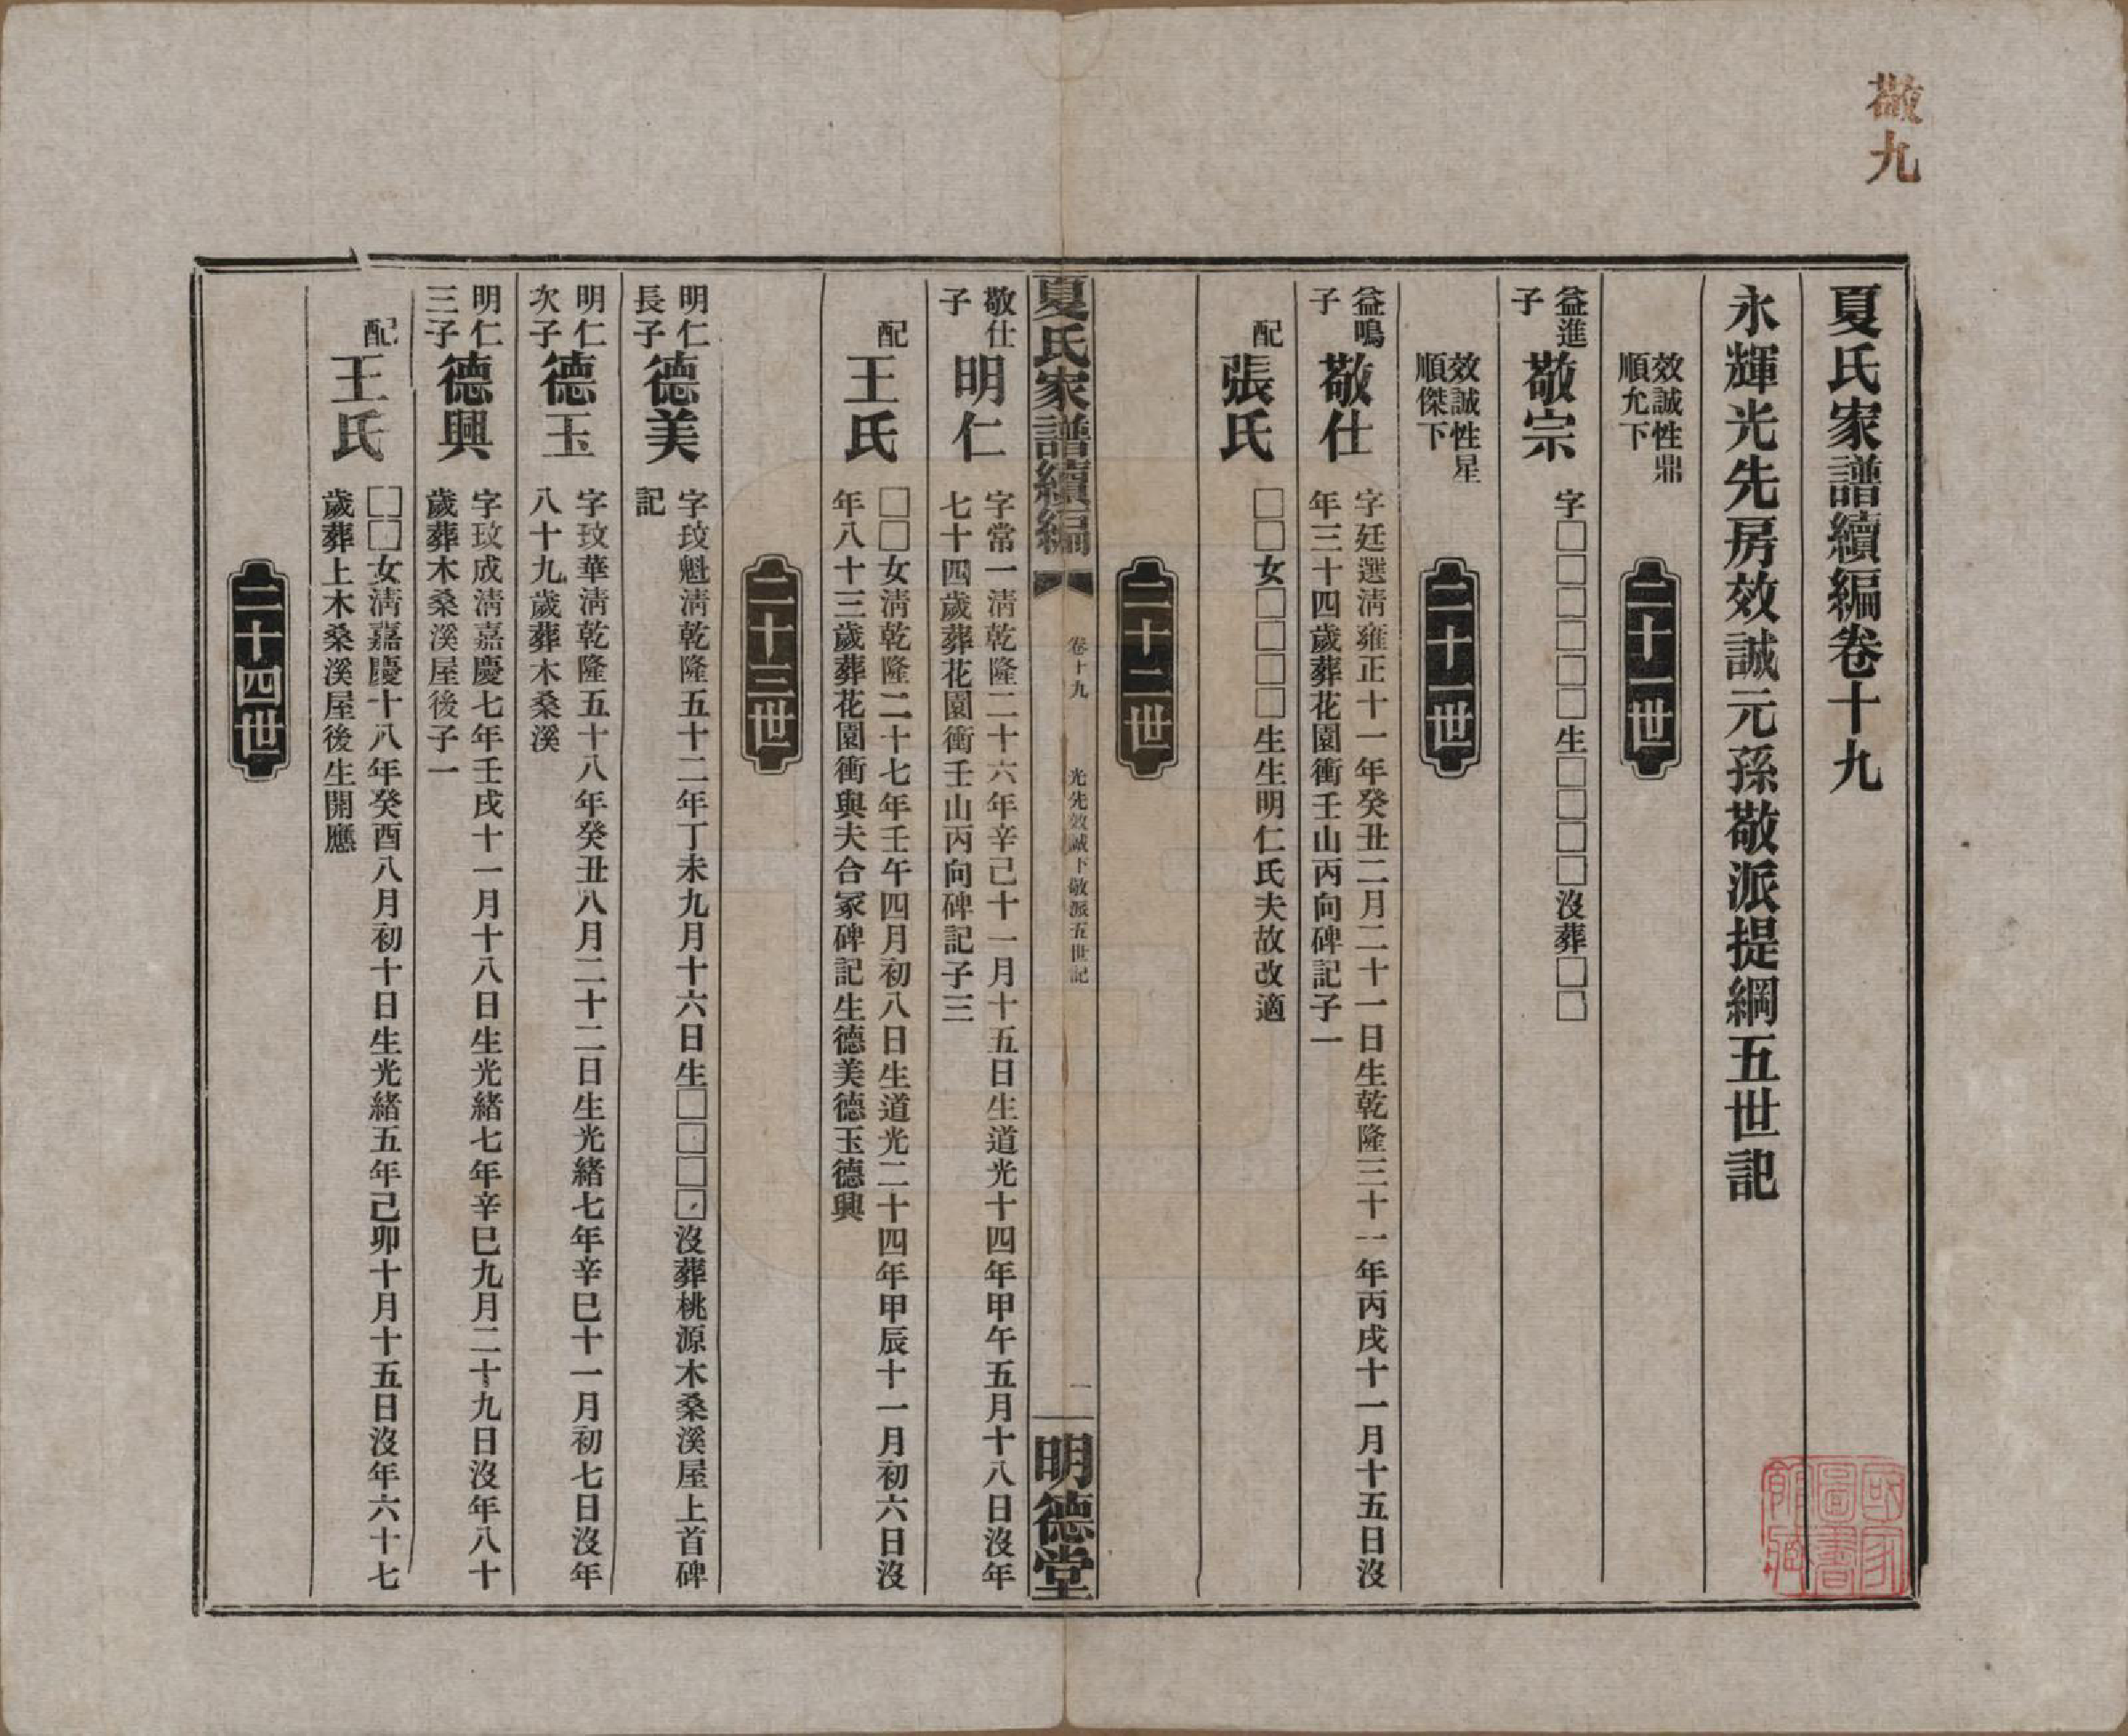 敬九
夏氏家譜續編卷十九
永輝光先房效誠元孫敬派提綱五世記
效誠性鼎
順允下
二十一世
益進
子
敬宗
字□□□□□□生□□□□沒葬□□
效誠性星
順傑下
二十一世
益鳴
子
敬仕
字廷選淸雍正十一年癸丑二月二十一日生乾隆三十一年丙戌十一月十五日沒
年三十四歲葬花園衝壬山丙向碑記子一
配
張氏
□□女□□□□生生明仁氏夫故改適
二十二世
夏氏家譜續編
卷十九
光先效誠下敬派五世記
一
明德堂
敬仕
子
明仁
字常一淸乾隆二十六年辛已十一月十五日生道光十四年甲午五月十八日沒年
七十四歲葬花園衝壬山丙向碑記子三
配
王氏
□□女淸乾隆二十七年壬午四月初八日生道光二十四年甲辰十一月初六日沒
年八十三歲葬花園衝與夫合冢碑記生德美德玉德興
二十三世
明仁
長子
德美
字玟魁淸乾隆五十二年丁未九月十六日生□□□□沒葬桃源木桑溪屋上首碑
記
明仁
次子
德玉
字玟華淸乾隆五十八年癸丑八月二十二日生光緒七年辛巳十一月初七日沒年
八十九歲葬木桑溪
明仁
三子
德興
字玟成淸嘉慶七年壬戌十一月十八日生光緒七年辛巳九月二十九日沒年八十
歲葬木桑溪屋後子一
配
王氏
□□女淸嘉慶十八年癸酉八月初十日生光緒五年己卯十月十五日沒年六十七
歲葬上木桑溪屋後生開應
二十四世
國家
圖書
館藏